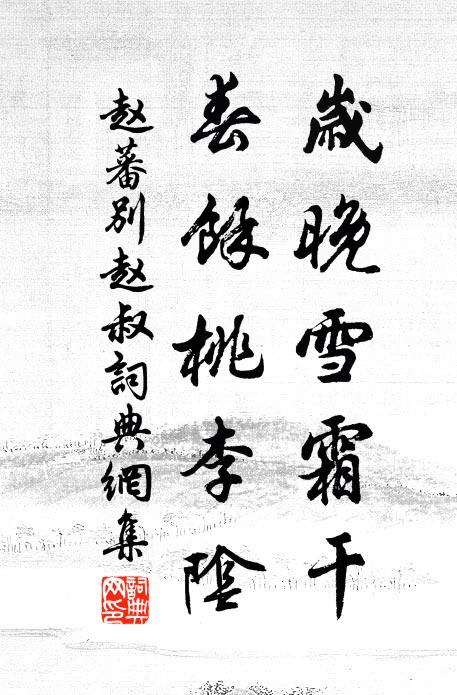 歲晚雪霜干
春餘桃李陰
赵蕃別赵叔詞典網集
詞典网印